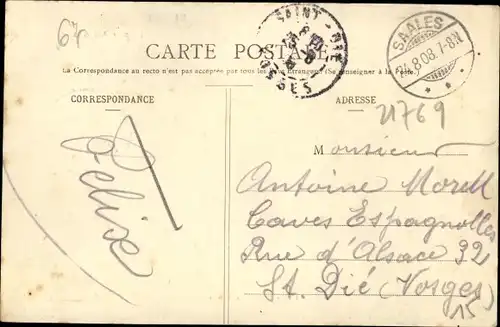 67
CARTE POSTALE
SAINT-DIÉ
VOSGES
SAALES
24.8.08.7-8N
La Correspondance au recto n'est pas acceptée par tous les pays Etrangers (Se renseigner à la Poste.)
CORRESPONDANCE
ADRESSE
21769
Felise
Monsieur
Antoine Morell
Caves Espagnolles
Rue d'Alsace 32
St. Dié (Vosges)
15